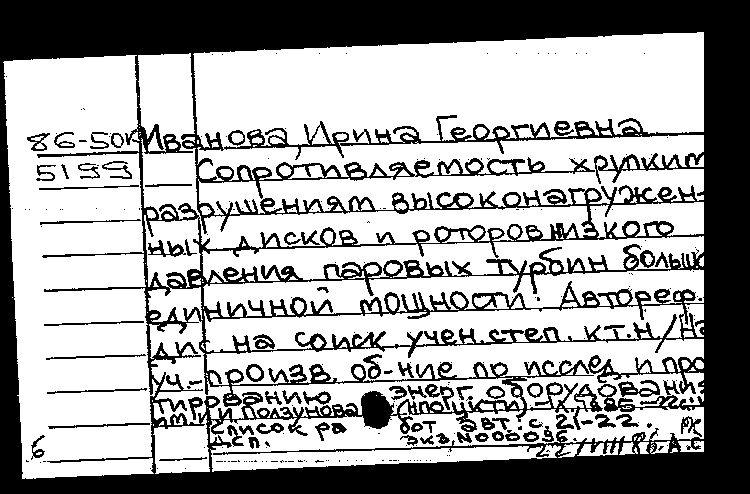 86-50к Иванова, Ирина Георгиевна
5199 Сопротивляемость хрупким
разрушениям высоконагружен-
ных дисков и роторов низкого
давления паровых турбин больш
единичной мощности: Автореф.
дис. на соиск. учен. степ. к.т.н / На
уч.-произв. об-ние по исслед. и про
тированию энерг. оборудования
им. И.И Ползунова (НПО ЦКТИ).- Л., 1986.- 22с.
Список ра бот авт.: с. 21-22.
Дсп. экз. N000036
6 22/VIII 86. А.С